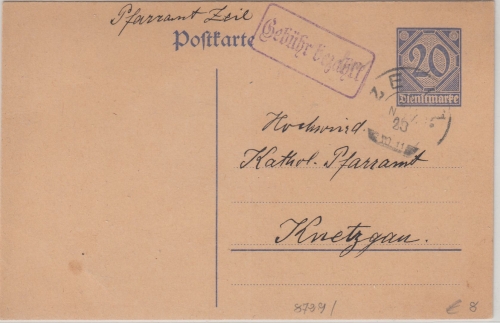 Pfarramt Zeil
Postkarte
Gebühr bezahlt
20
Dienstmarke
ZEIL
23
10-11
Hochwürd.
Kathol. Pfarramt
Knetzgau.
8799/
€ 8